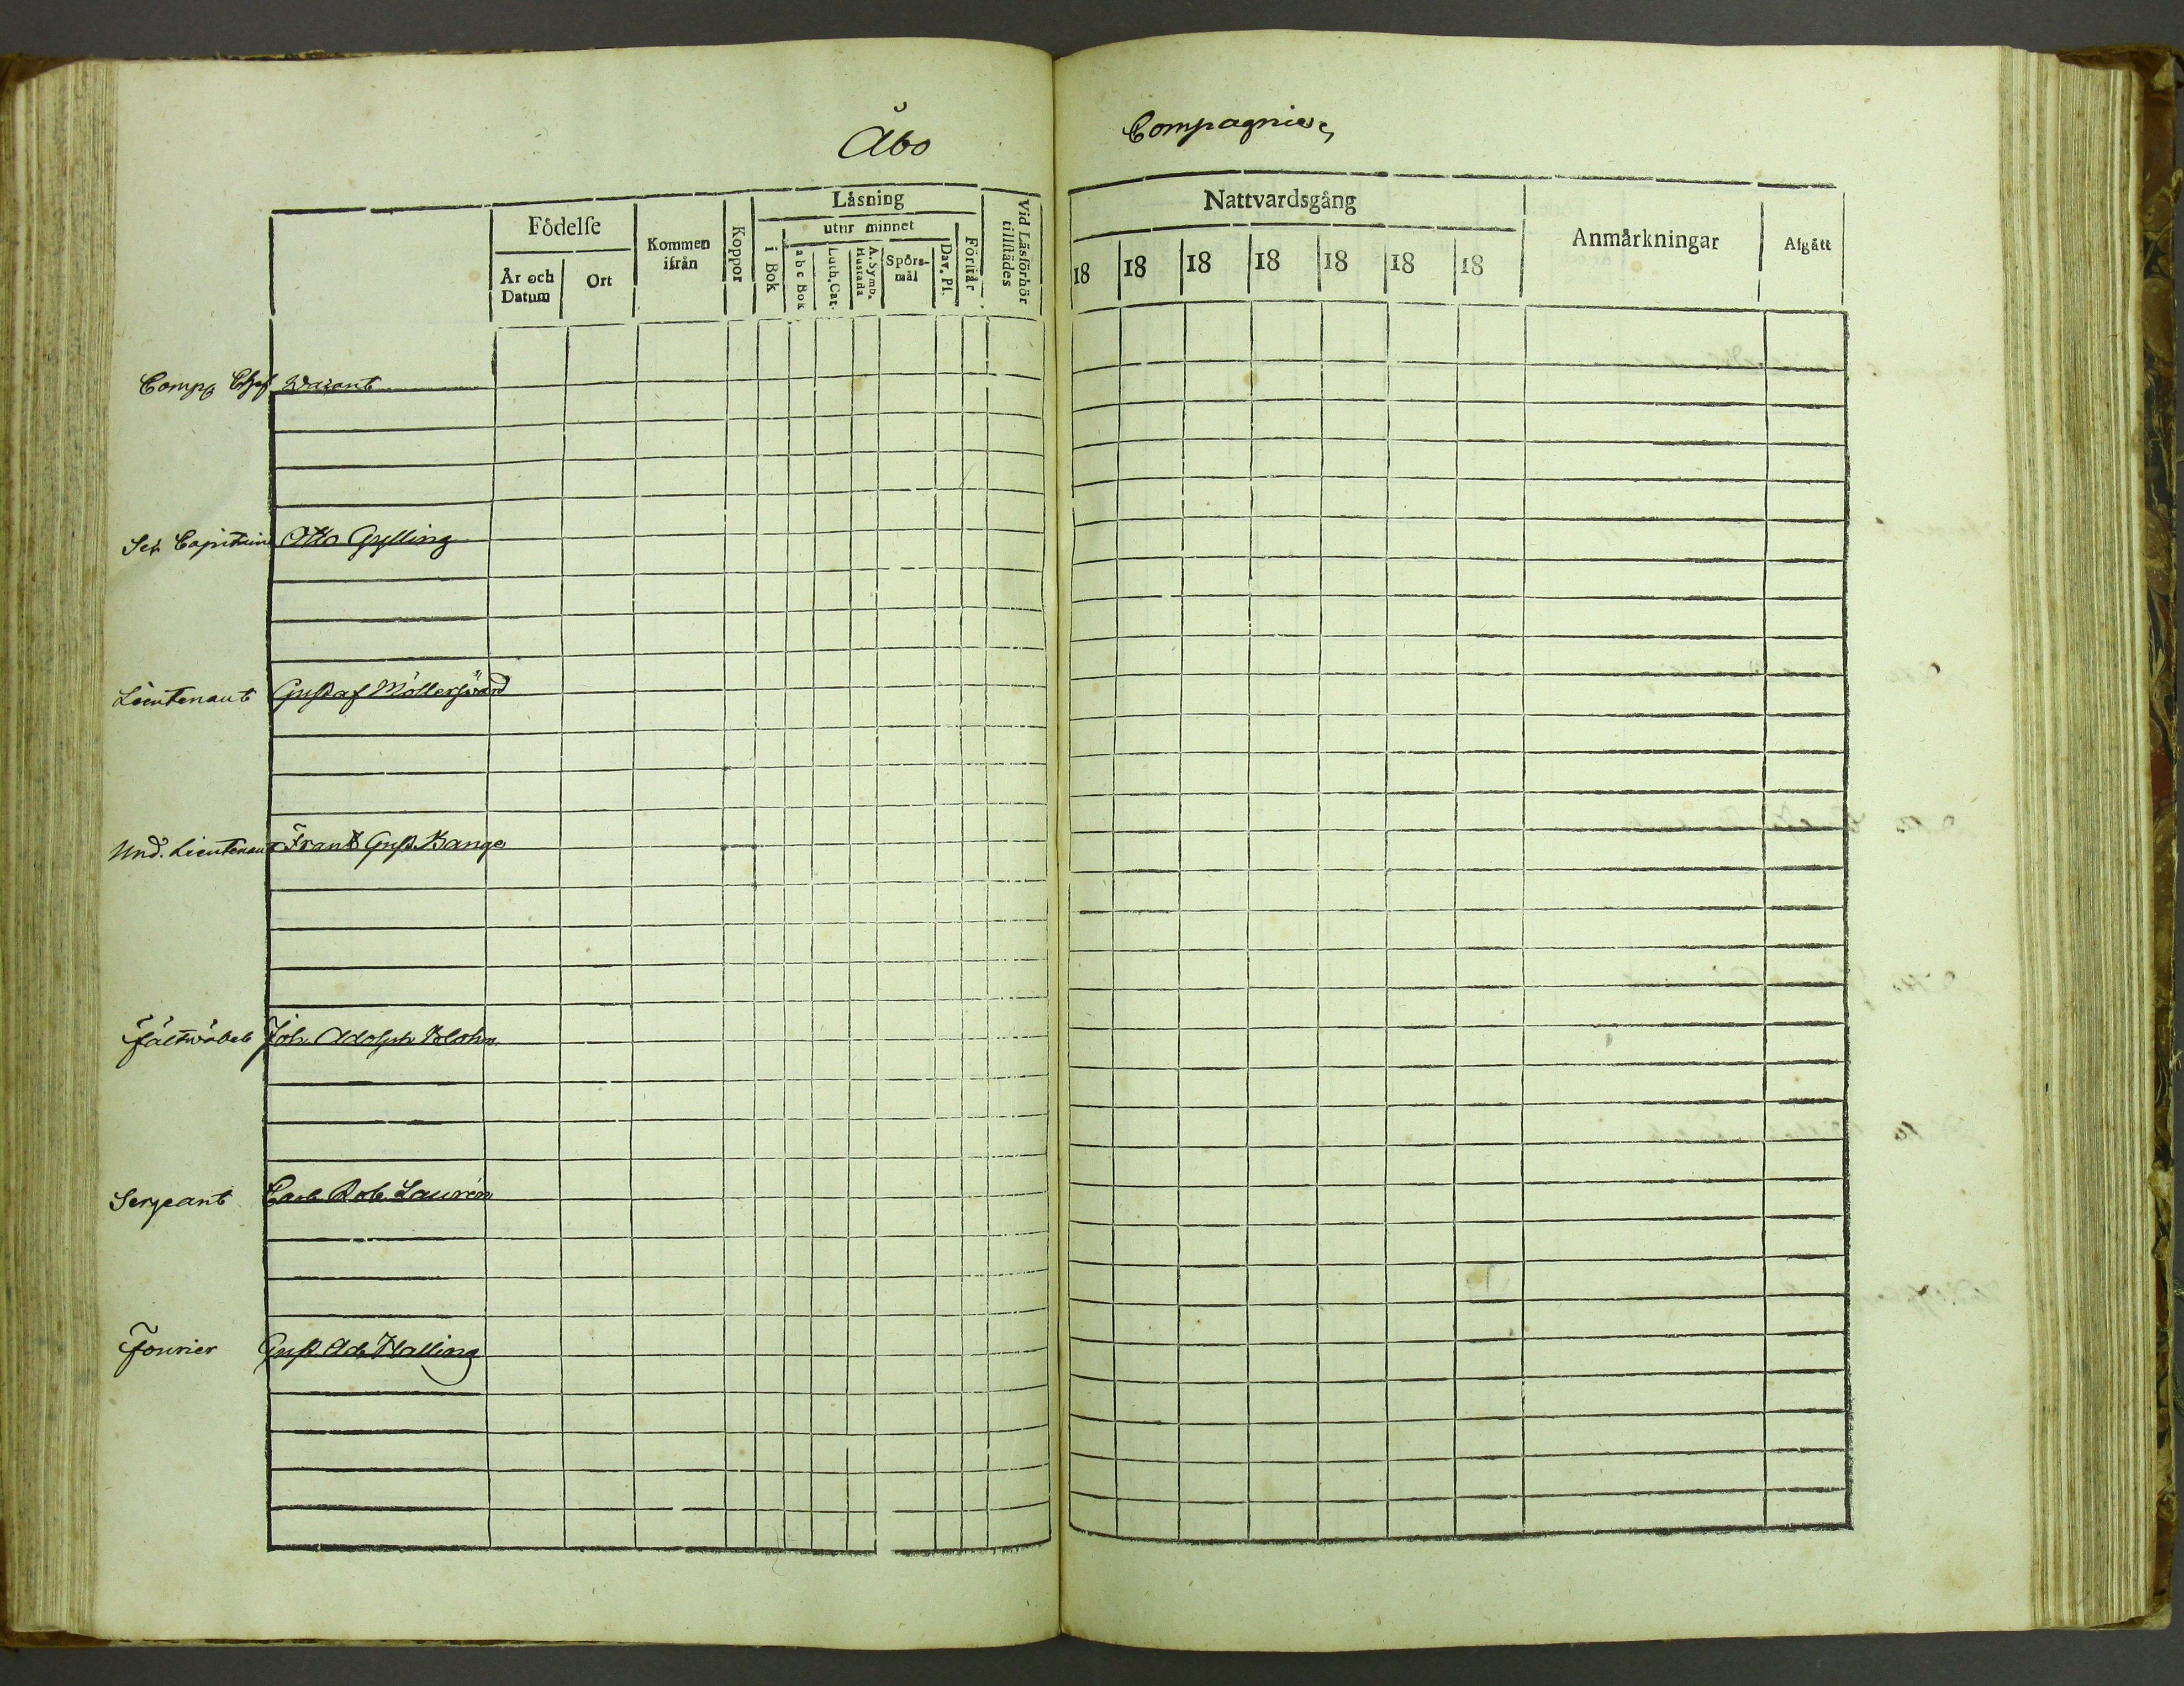 Åbo Compagnie
Födelse
År och Datum
Ort
Kommen ifrån
Koppor
Läsning
utur minnet
i Bok
a b c Bok
Luth. Cat.
A. Symb. Hustafla
Spörs-mål
Dav. Ps.
Förstår
Vid Läsförhör tillstädes
Nattvardsgång
18 18 18 18 18 18 18
Anmärkningar
Afgått
Comp Chef Vacant
Capitain Otto Gylling
Lieutenant Gustaf Möllersvärd
Und. Lieutenant Frans Gust. Bange
Fältväbel Joh. Adolph Blohm
Sergeant Carl Rob. Laurén
Fourier Gust. Ad. Halling